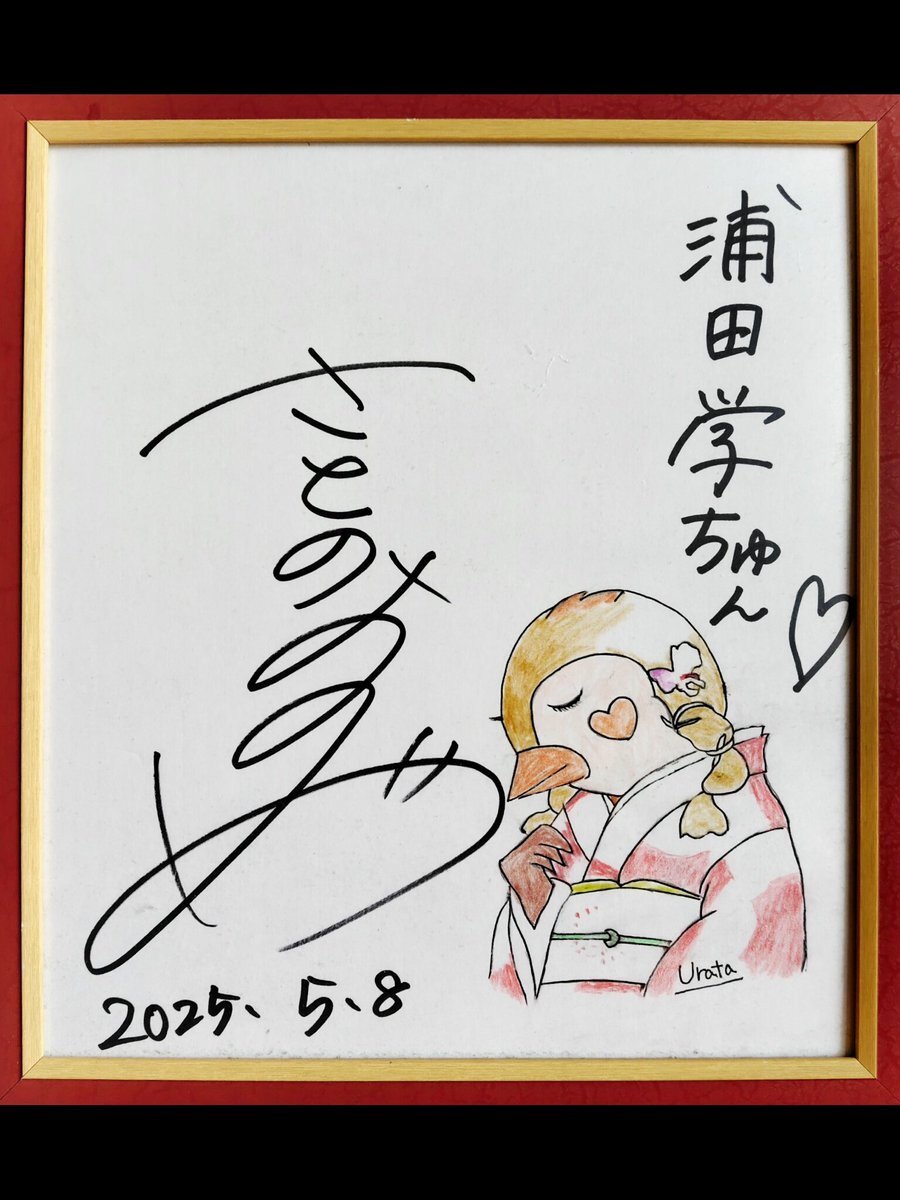 浦田学ちゅん
さとの
2025、5、8
Urata